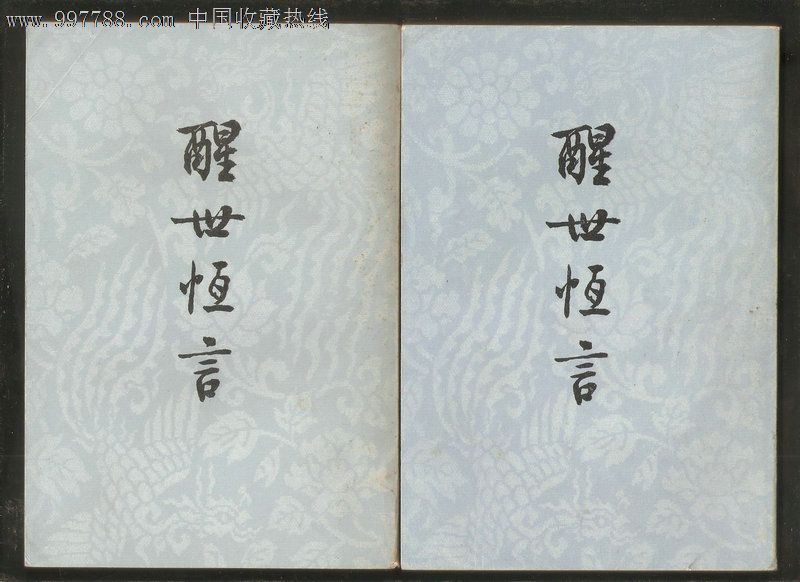 www.997788.com 中国收藏热线
醒世恆言
醒世恆言